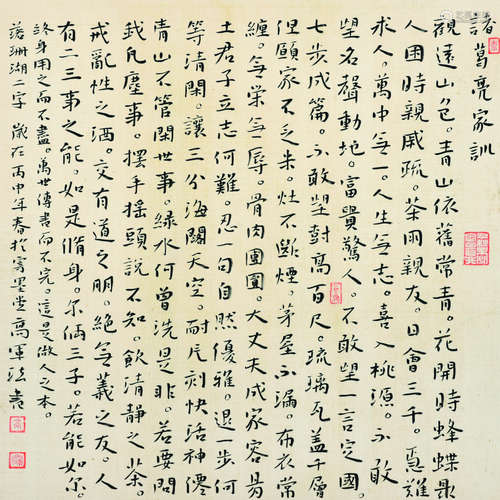 諸葛亮家訓
觀遠山色。青山依舊常青。花開時蜂蝶最
人困時親戚疏。茶雨親友。日會三千。急難
求人。萬中無一。人生無志。喜入桃源。不敢
望名聲動地。富貴驚人。不敢望一言定國。
七步成篇。不敢望封高百尺。琉璃瓦蓋千層
但願家不乏米。灶不斷煙。茅屋不漏。布衣常
纏。無榮無辱。骨肉團圓。大丈夫成家容易
士君子立志何難。忍一句自然優雅。退一步何
等清閑。讓三分海闊天空。耐片刻快活神僊
青山不管閑世事。綠水何曾洗是非。若要問
我凡塵事。擺手搖頭說不知。飲清靜之茶。
戒亂性之酒。交有道之朋。絕無義之友。人
有二三事之能。如是脩身。尔倆三子。若能如尔。
終身用之而不盡。萬世傳書而不完。這是做人之本。
落珊湖二字 歲在丙申年春於墨堂高軍法書